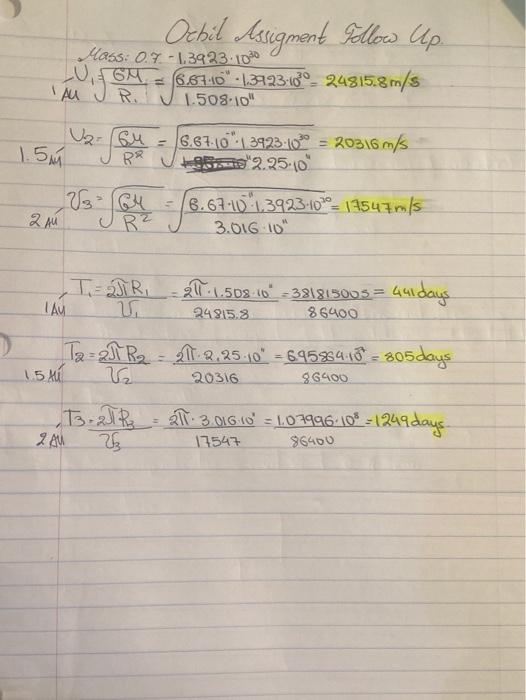 Orbit Assigment Follow Up.
Mass: 0.7 - 1.3923·10³⁰
1 AU U₁ = √(GM/R₁) = √(6.67·10⁻¹¹·1.3923·10³⁰/1.508·10¹¹) = 24815.8 m/s
1.5 AU U₂ = √(GM/R²) = √(6.67·10⁻¹¹·1.3923·10³⁰/2.25·10¹¹) = 20316 m/s
2 AU U₃ = √(GM/R²) = √(6.67·10⁻¹¹·1.3923·10³⁰/3.016·10¹¹) = 17547 m/s
1 AU T₁ = 2πR₁/U₁ = 2π·1.508·10¹¹/24815.8 = 38181500s/86400 = 441 days
1.5 AU T₂ = 2πR₂/U₂ = 2π·2.25·10¹¹/20316 = 6.95864·10⁷/86400 = 805 days
2 AU T₃ = 2πR₃/U₃ = 2π·3.016·10¹¹/17547 = 1.07996·10⁸/86400 = 1249 days